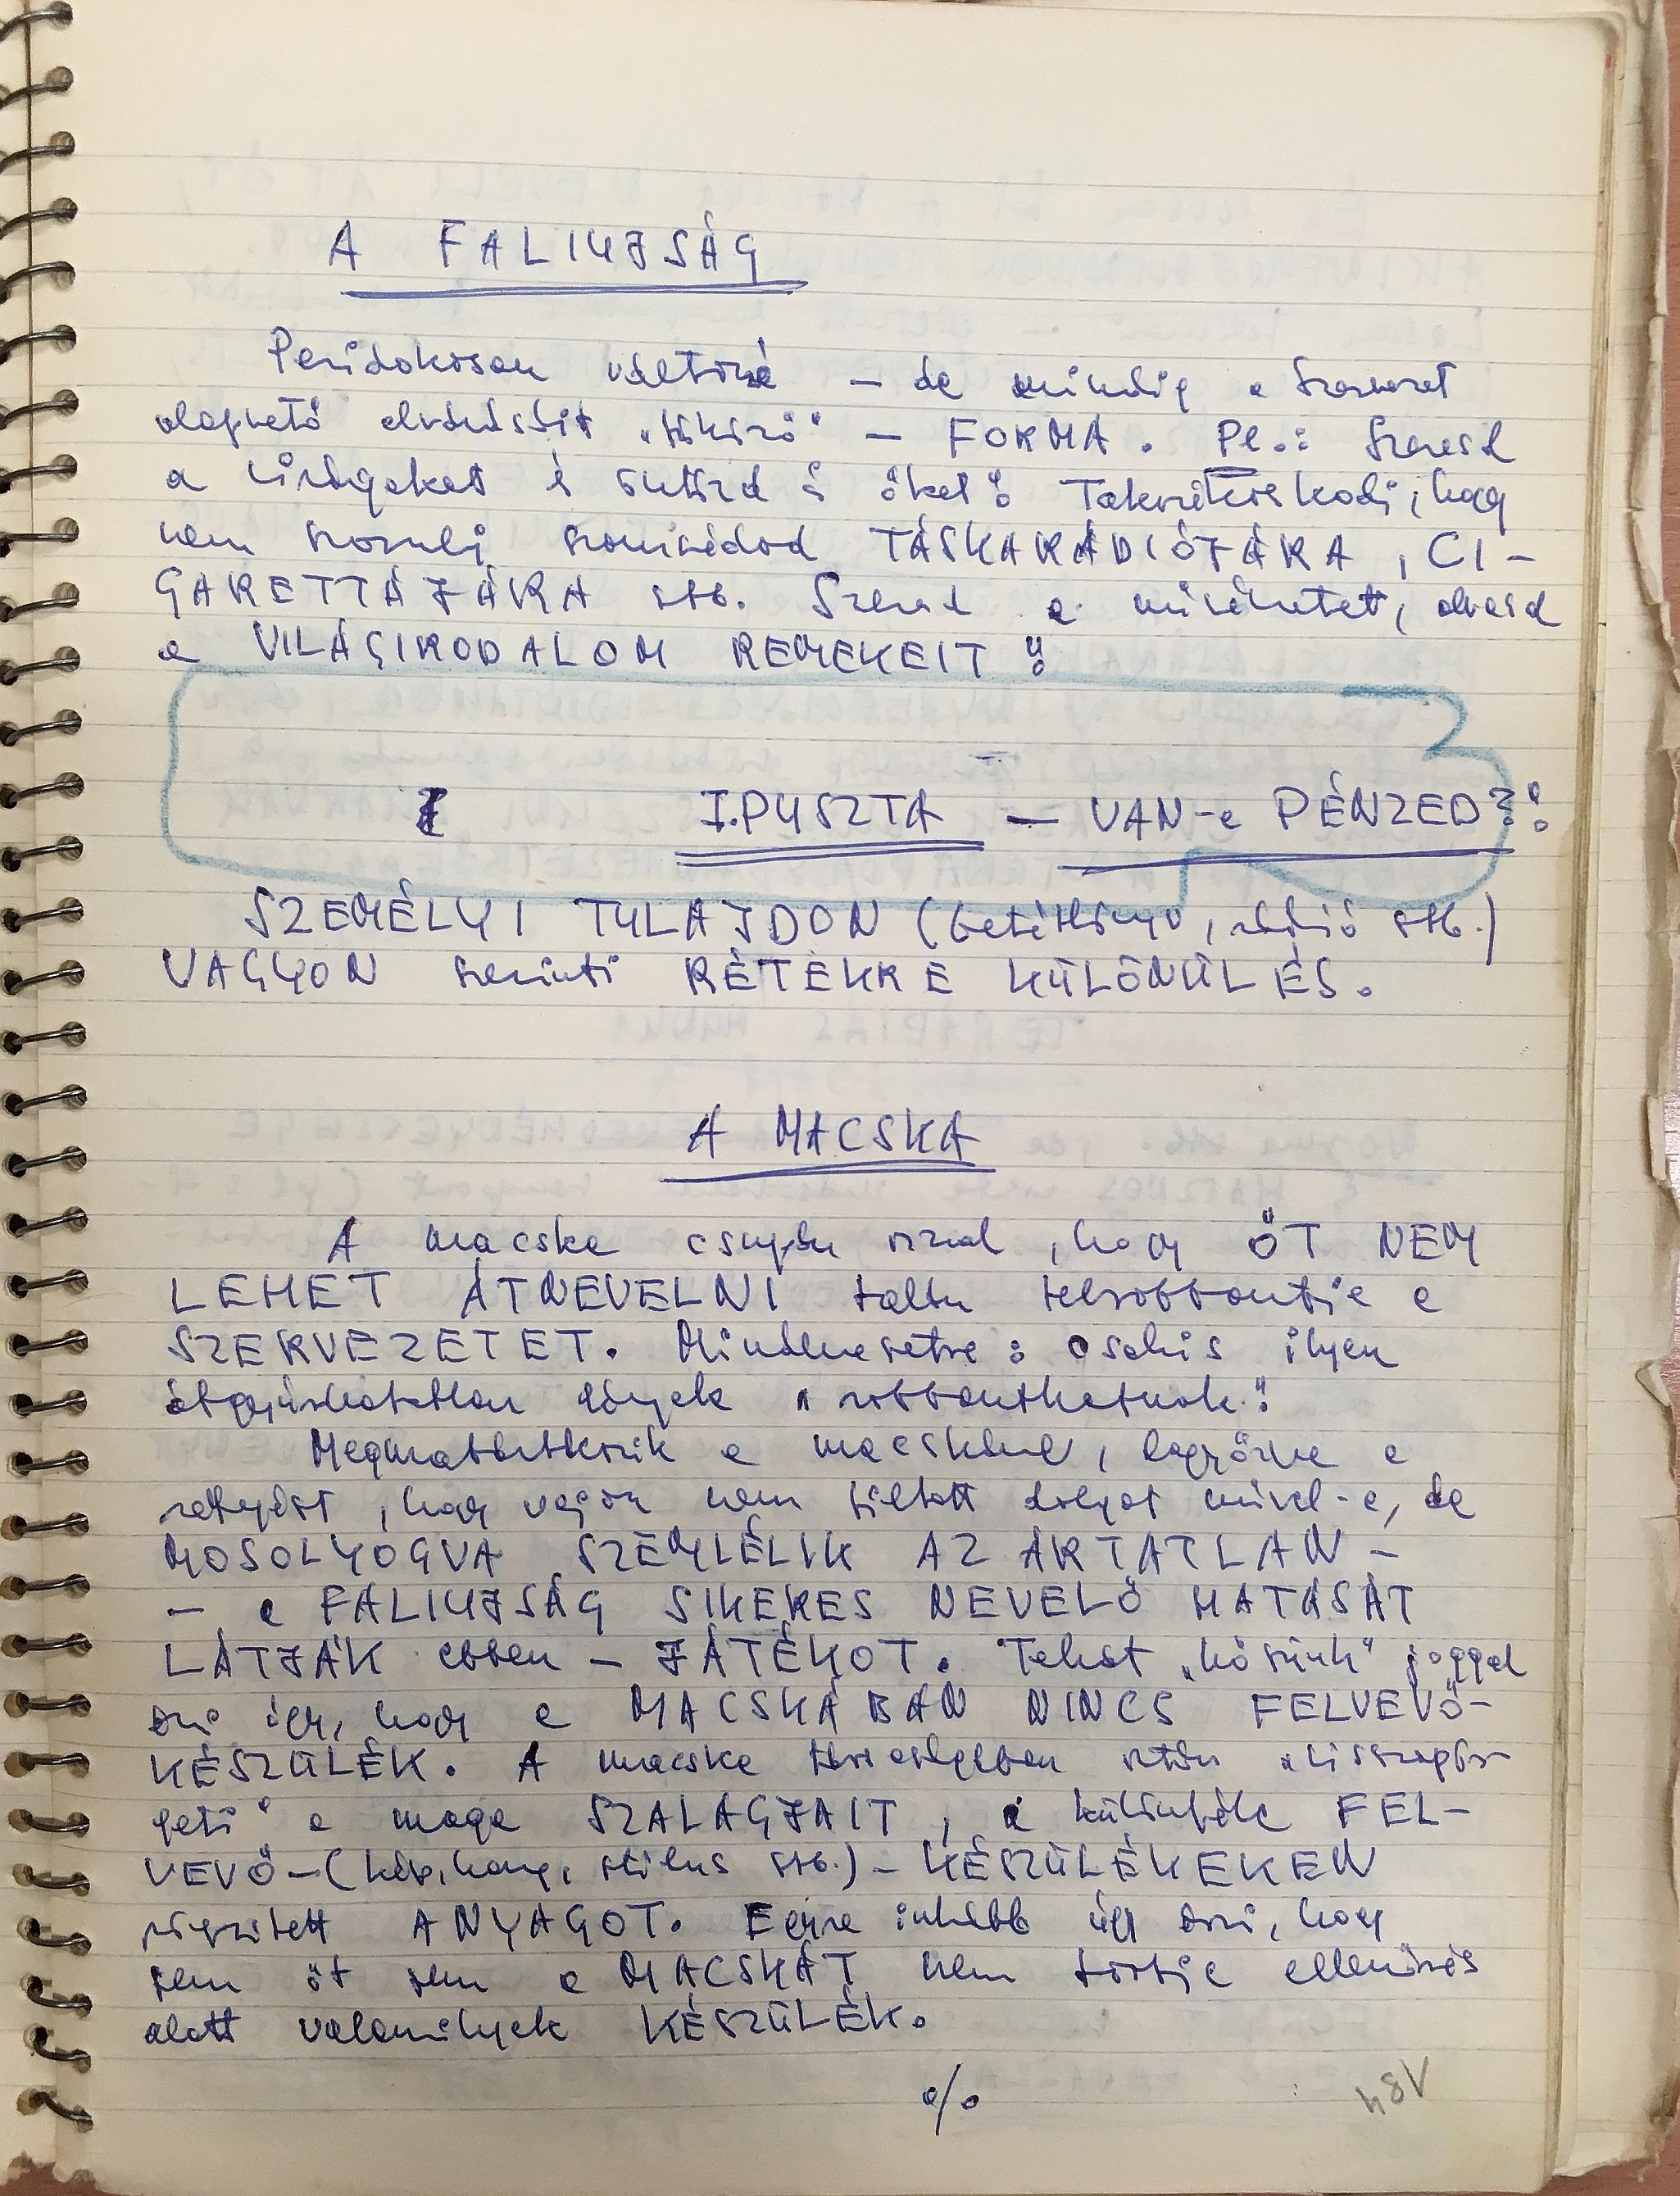 A FALIUJSÁG
Peridokosan változó — de mindig a szervezet
alapvető elvárásait "tükröző" — FORMA. Pl.: Szeresd
a virágokat és öntözd is őket! Takarításkor, hogy
nem szoruly szomszédod TÁSKARÁDIÓJÁRA, CI-
GARETTÁJÁRA stb. Szeresd a művészetet, olvasd
a VILÁGIRODALOM REMEKEIT!
I. PUSZTA — VAN-e PÉNZED?!
SZEMÉLYI TULAJDON (betétkönyv, rádió stb.)
VAGYON szerinti RÉTEKRE KÜLÖNÜLÉS.
A MACSKA
A macska csupán azzal, hogy ŐT NEM
LEHET ÁTNEVELNI talán felrobbantja a
SZERVEZETET. Mindenesetre: csakis ilyen
átgyúrhatatlan lények "robbanthatnak."
a macskánál, legyőzve a
, hogy vajon nem tiltott dolgot művel-e, de
MOSOLYOGVA SZEMLÉLIK AZ ÁRTATLAN -
- a FALIUJSÁG SIKERES NEVELŐ HATÁSÁT
LÁTJÁK ebben - JÁTÉKOT. Tehát "hősünk" joggal
érzi úgy, hogy a MACSKÁBAN NINCS FELVEVŐ-
KÉSZÜLÉK. A macska társaságában aztán "visszapör-
geti" a maga SZALAGJAIT, a különféle FEL-
VEVŐ-(kép, hang, stílus stb.)-KÉSZÜLÉKEKEN
rögzített ANYAGOT. Egyre inkább úgy érzi, hogy
sem őt sem a MACSKÁT nem tartja ellenőrzés
alatt valamilyek KÉSZÜLÉK.
%
48V